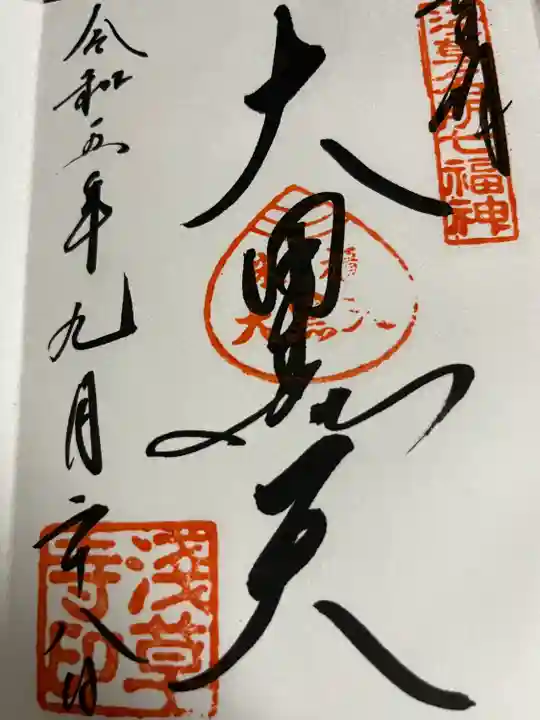 浅草名所七福神
大黒天
令和五年九月二十八日
浅草寺印